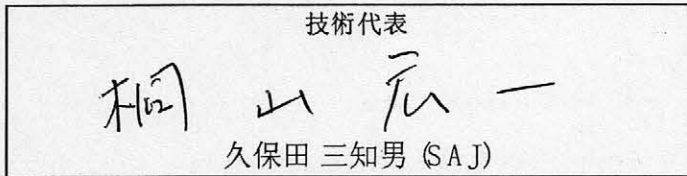 技術代表
桐山広一
久保田 三知男 (SAJ)